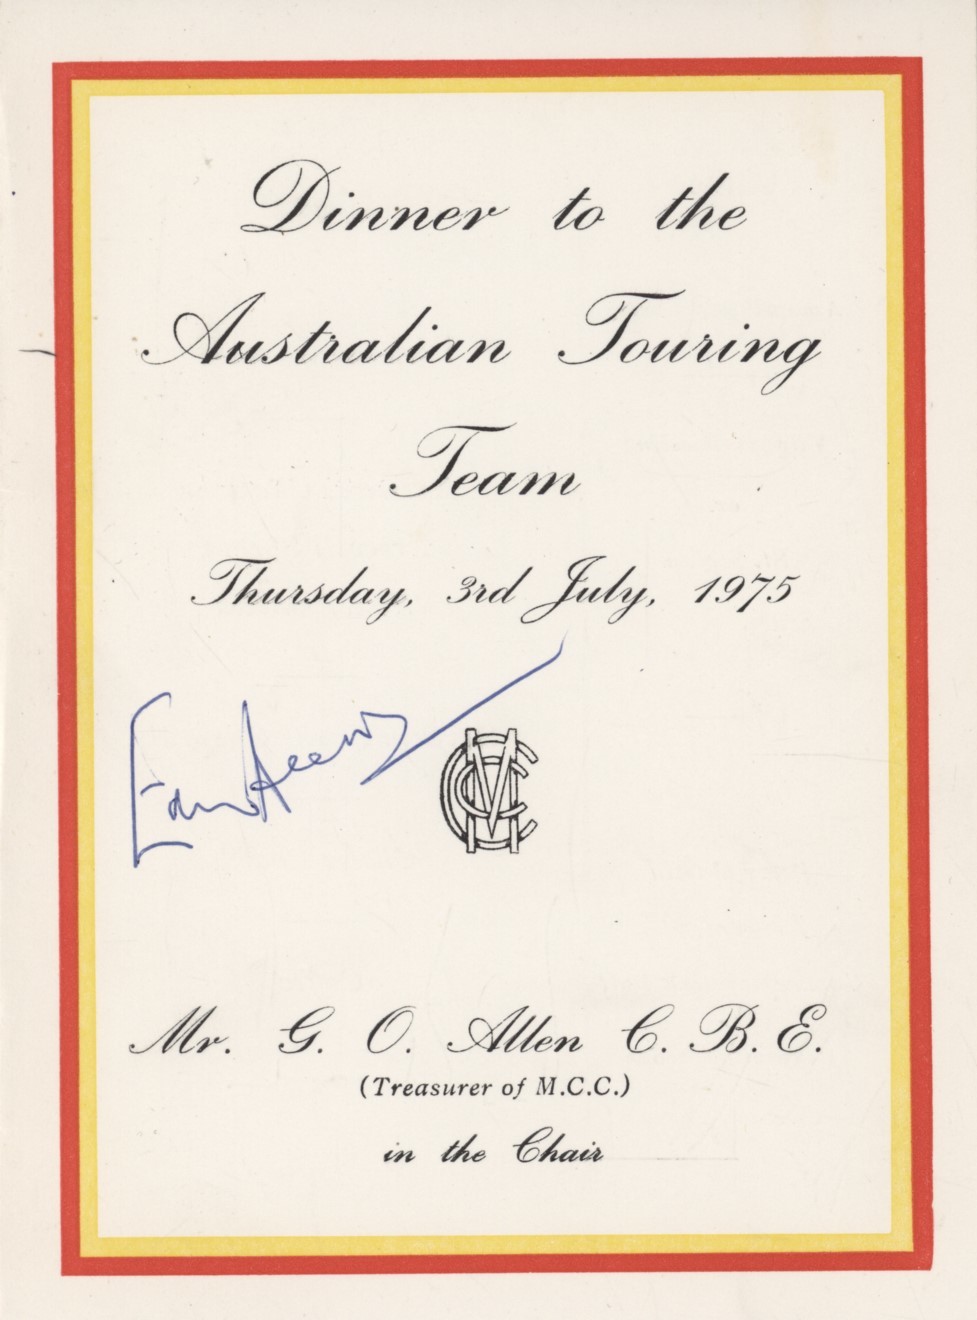 Dinner to the
Australian Touring
Team
Thursday, 3rd July, 1975
MCC
Mr. G. O. Allen C. B. E.
(Treasurer of M.C.C.)
in the Chair